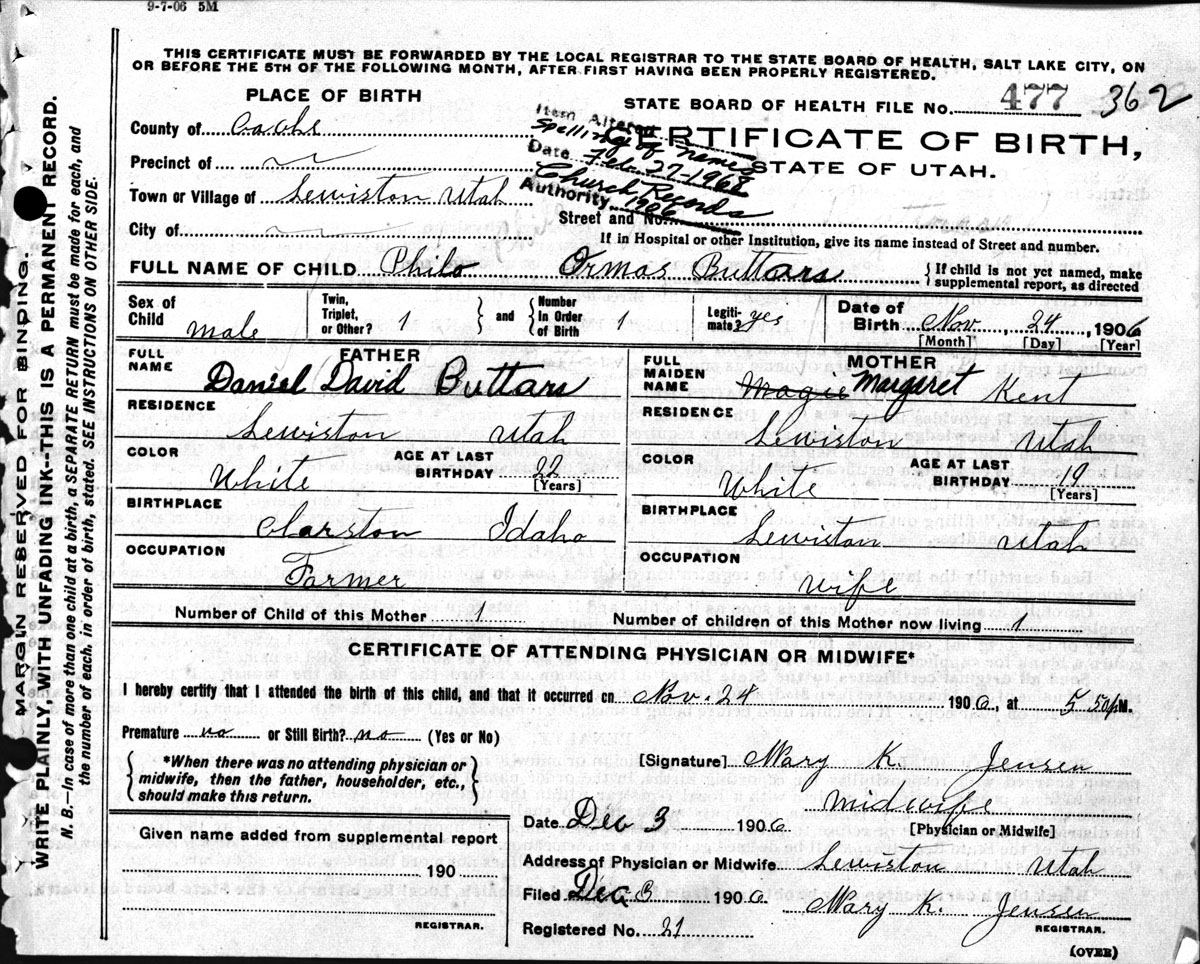 9-7-06 5M
THIS CERTIFICATE MUST BE FORWARDED BY THE LOCAL REGISTRAR TO THE STATE BOARD OF HEALTH, SALT LAKE CITY, ON
OR BEFORE THE 5TH OF THE FOLLOWING MONTH, AFTER FIRST HAVING BEEN PROPERLY REGISTERED.
PLACE OF BIRTH
STATE BOARD OF HEALTH FILE No. 477 362
County of Cache
Item Altered
Spelling of names
Date Feb. 27-1968
Church Records
Authority 1906
CERTIFICATE OF BIRTH,
STATE OF UTAH.
Precinct of
Town or Village of Lewiston Utah
Street and No.
City of
If in Hospital or other Institution, give its name instead of Street and number.
FULL NAME OF CHILD Philo Ormas Buttars
If child is not yet named, make
supplemental report, as directed
Sex of Child male
Twin, Triplet, or Other? 1
and
Number in Order of Birth 1
Legitimate? yes
Date of Birth Nov, 24, 1906
[Month] [Day] [Year]
FATHER
FULL NAME Daniel David Buttars
RESIDENCE
Lewiston Utah
COLOR White
AGE AT LAST BIRTHDAY 22
[Years]
BIRTHPLACE
Clarston Idaho
OCCUPATION
Farmer
MOTHER
FULL MAIDEN NAME Magie Margaret Kent
RESIDENCE
Lewiston Utah
COLOR White
AGE AT LAST BIRTHDAY 19
[Years]
BIRTHPLACE
Lewiston Utah
OCCUPATION
wife
Number of Child of this Mother 1
Number of children of this Mother now living 1
CERTIFICATE OF ATTENDING PHYSICIAN OR MIDWIFE*
I hereby certify that I attended the birth of this child, and that it occurred on Nov. 24 1906, at 5 50 P.M.
Premature no or Still Birth? no (Yes or No)
*When there was no attending physician or
midwife, then the father, householder, etc.,
should make this return.
[Signature] Mary K. Jensen
midwife
[Physician or Midwife]
Date Dec 3 1906
Given name added from supplemental report
190
REGISTRAR.
Address of Physician or Midwife Lewiston Utah
Filed Dec 3 1906 Mary K. Jensen
REGISTRAR.
Registered No. 21
(OVER)
MARGIN RESERVED FOR BINDING.
WRITE PLAINLY, WITH UNFADING INK--THIS IS A PERMANENT RECORD.
N. B.—In case of more than one child at a birth, a SEPARATE RETURN must be made for each, and
the number of each, in order of birth, stated. SEE INSTRUCTIONS ON OTHER SIDE.